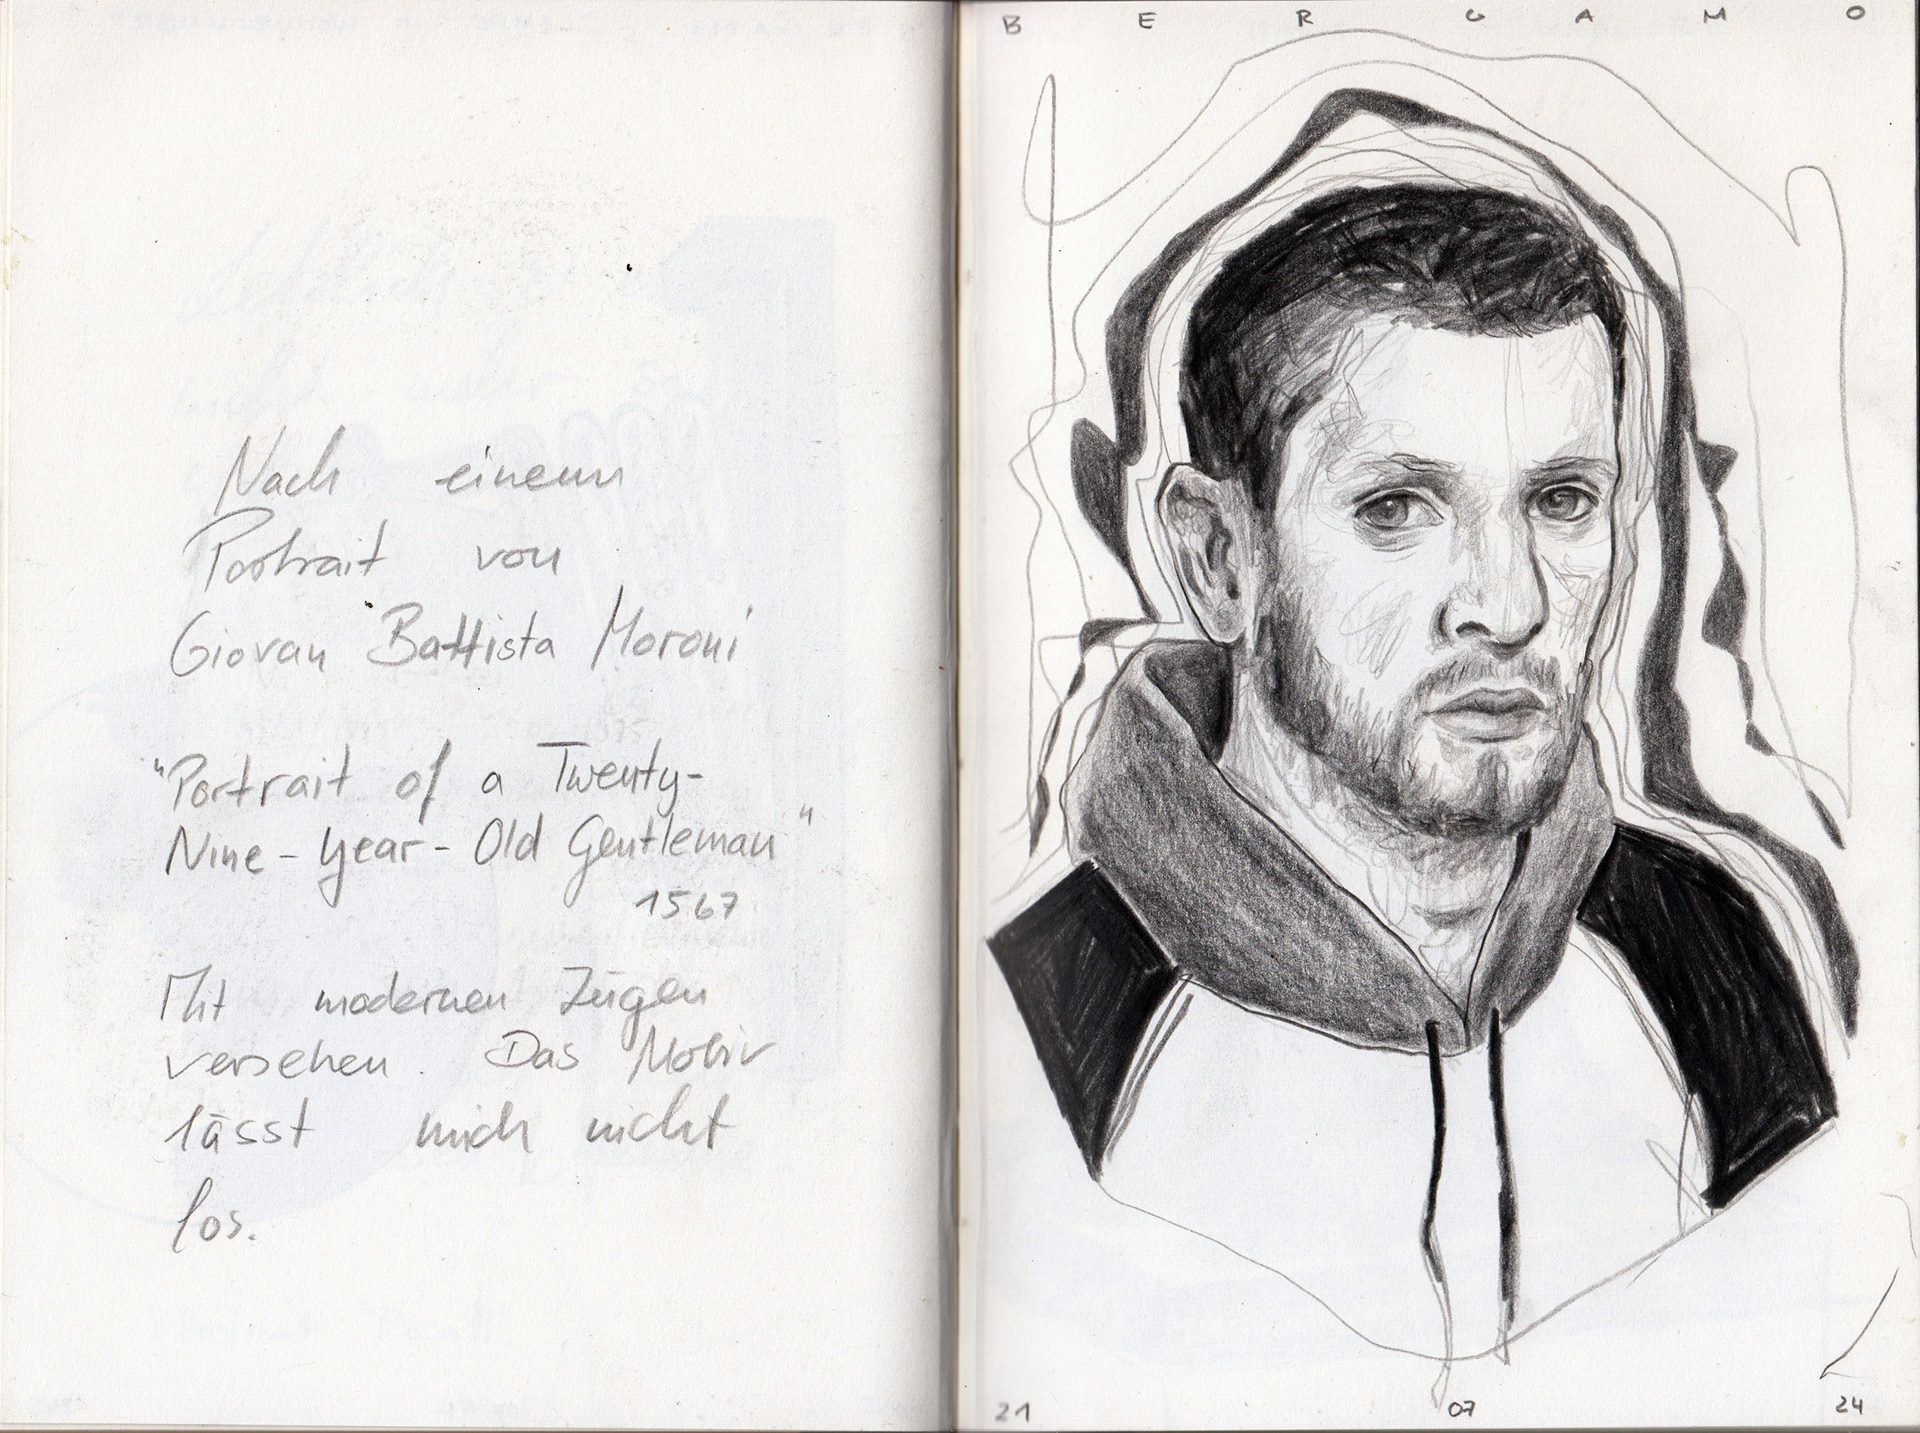 Nach einem
Portrait von
Giovan Battista Moroni
"Portrait of a Twenty-
Nine-Year-Old Gentleman"
1567
Mit modernen Zügen
versehen. Das Motiv
lässt mich nicht
los.
B E R G A M O
21 07 24